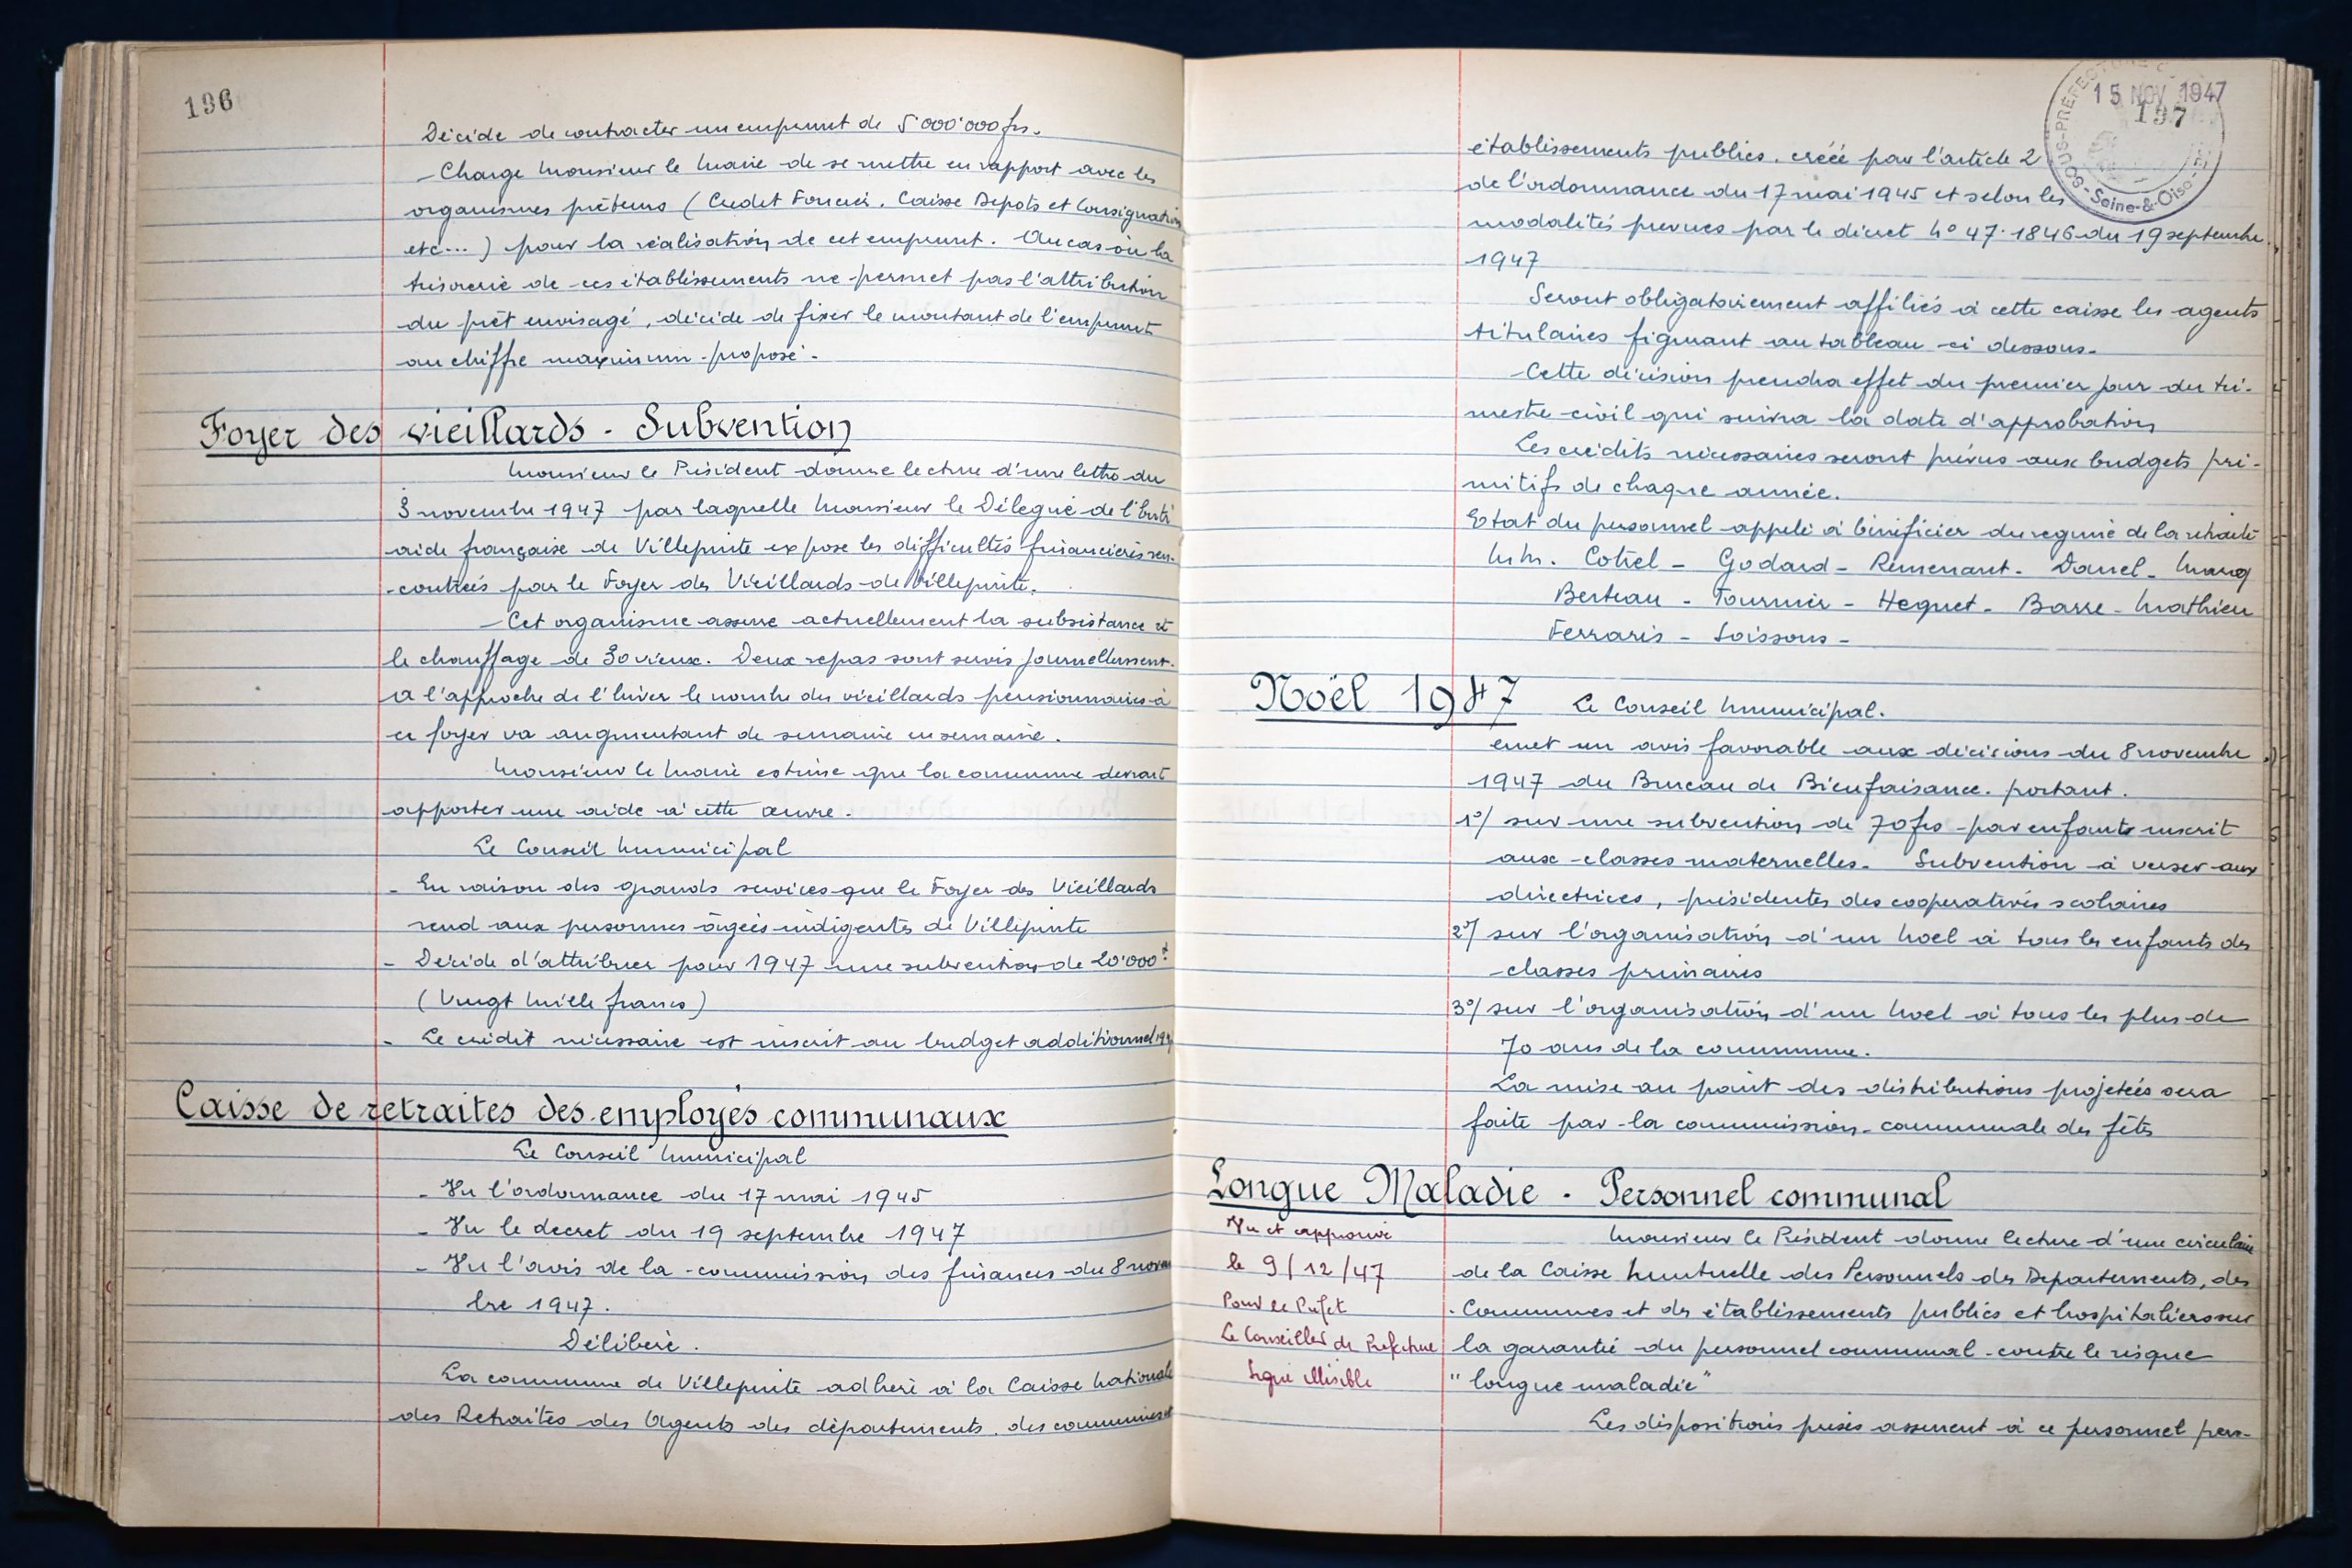 196
Décide de contracter un emprunt de 5'000'000 frs.
- Charge Monsieur le Maire de se mettre en rapport avec les
organismes prêteurs (Crédet Foncier, Caisse Depots et Consignation
etc...) pour la réalisation de cet emprunt. Au cas où la
trésorerie de ces établissements ne permet pas l'attribution
du prêt envisagé, décide de fixer le montant de l'emprunt
au chiffre maximum proposé.
Foyer des vieillards - Subvention
Monsieur le Président donne lecture d'une lettre du
3 novembre 1947 par laquelle Monsieur le Délégué de l'Entr'
aide française de Villepinte expose les difficultés financières ren-
-contrées par le Foyer des Vieillards de Villepinte.
- Cet organisme assure actuellement la subsistance et
le chauffage de 30 vieux. Deux repas sont servis journellement.
A l'approche de l'hiver le nombre des vieillards pensionnaires à
ce foyer va augmentant de semaine en semaine.
Monsieur le Maire estime que la commune devrait
apporter une aide à cette œuvre.
Le Conseil Municipal
- En raison des grands services que le Foyer des Vieillards
rend aux personnes âgées indigentes de Villepinte
- Décide d'attribuer pour 1947 une subvention de 20'000f
(Vingt Mille francs)
- Le crédit nécessaire est inscrit au budget additionnel 194
Caisse de retraites des employés communaux
Le Conseil Municipal
- Vu l'ordonnance du 17 mai 1945
- Vu le decret du 19 septembre 1947
- Vu l'avis de la commission des finances du 8 novem
bre 1947.
Délibère.
La commune de Villepinte adhère à la Caisse Nationale
des Retraites des Agents des départements, des communes et
SOUS-PRÉFECTURE
Seine-&-Oise
15 NOV 1947
197
établissements publics, créée par l'article 2
de l'ordonnance du 17 mai 1945 et selon les
modalités prevues par le décret No 47.1846 du 19 septembre
1947
Seront obligatoirement affiliés à cette caisse les agents
titulaires figurant au tableau ci dessous.
- Cette décision prendra effet du premier jour du tri-
mestre civil qui suivra la date d'approbation
Les crédits nécessaires seront prévus aux budgets pri-
mitifs de chaque année.
Etat du personnel appelé à bénéficier du regime de la retraite
M.M. Cotrel - Godard - Remenant - Danel -
Berteau - Tournier - Hequet - Barre - Mathieu
Ferraris - Soissons -
Noël 1947 Le Conseil Municipal.
emet un avis favorable aux décisions du 8 novembre
1947 du Bureau de Bienfaisance. portant.
1°/ sur une subvention de 70 frs par enfants inscrit
aux classes maternelles. Subvention à verser aux
directrices, présidentes des cooperatives scolaires
2°/ sur l'organisation d'un Noel à tous les enfants des
classes primaires
3°/ sur l'organisation d'un Noel à tous les plus de
70 ans de la commune.
La mise au point des distributions projetées sera
faite par la commission communale des fêtes
Longue Maladie - Personnel communal
Vu et approuvé
le 9/12/47
Pour le Préfet
Le Conseiller de Préfecture
Signé illisible
Monsieur le Président donne lecture d'une circulaire
de la Caisse Mutuelle des Personnels des Departements, des
Communes et des établissements publics et hospitaliers sur
la garantie du personnel communal contre le risque
"longue maladie"
Les dispositions prises assurent à ce personnel pers-